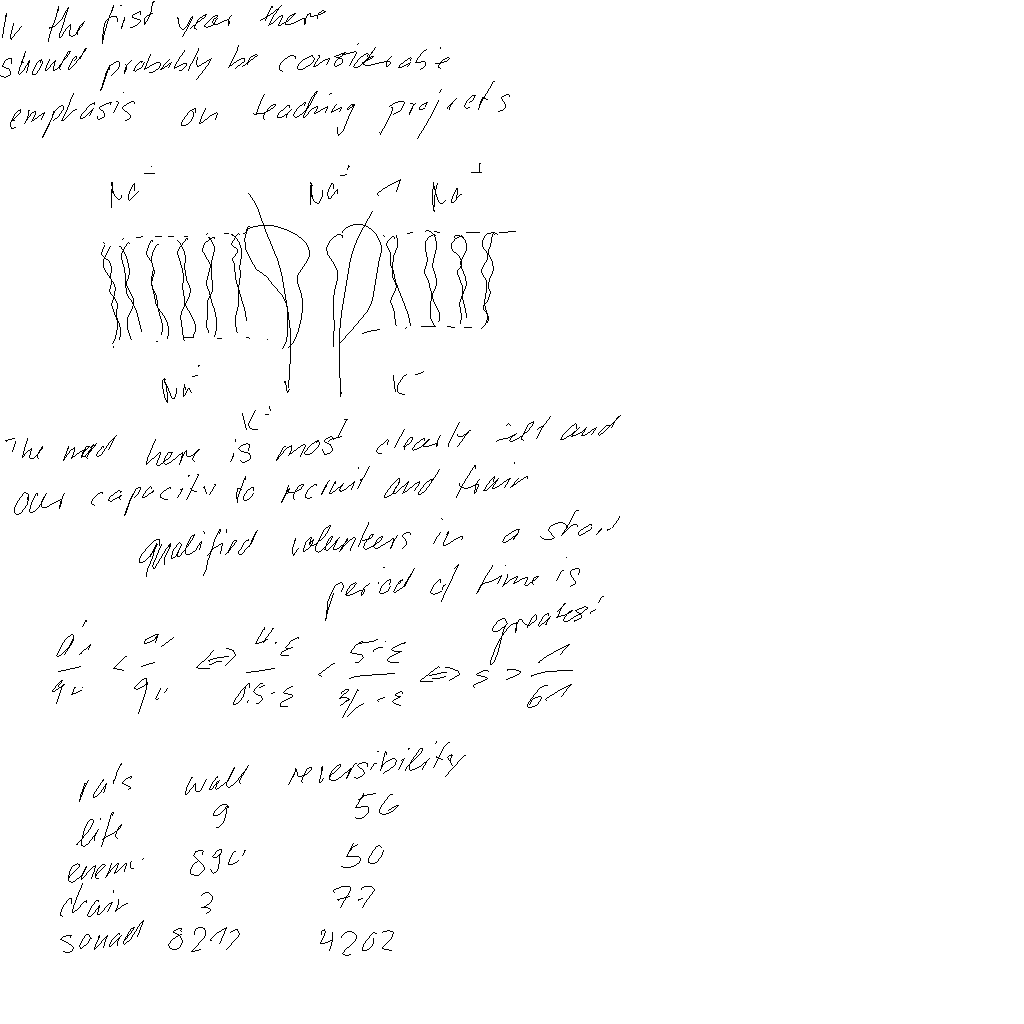 In the first year there
should probably be considerable
emphasis on teaching projects
Na+ Na+ Na+
Na+ K+ K-
The need here is most clearly felt and
our capacity to recruit and train
qualified volunteers in a short
period of time is
greatest
rats wall reversibility
life 9 56
enemi 50
chair 3 77
squad 8217 4202